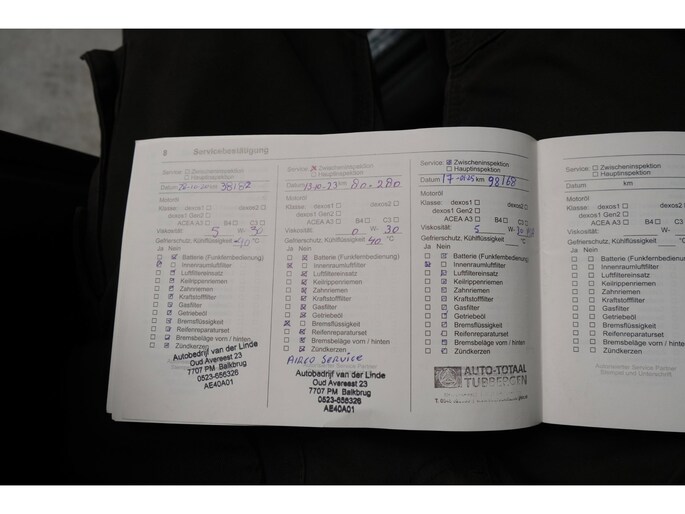 8 Servicebestätigung
Service: ☐ Zwischeninspektion
☐ Hauptinspektion
Datum km 38182
Motoröl
Klasse: dexos1 ☐ dexos2 ☐
dexos1 Gen2 ☐
ACEA A3 ☐ B4 ☐ C3 ☐
Viskosität: 5 W- 30
Gefrierschutz, Kühlflüssigkeit -40 °C
Ja Nein
☐ ☒ Batterie (Funkfernbedienung)
☒ ☐ Innenraumluftfilter
☐ ☒ Luftfiltereinsatz
☐ ☒ Keilrippenriemen
☐ ☒ Zahnriemen
☐ ☒ Kraftstofffilter
☐ ☒ Gasfilter
☐ ☒ Getriebeöl
☐ ☒ Bremsflüssigkeit
☐ ☒ Reifenreparaturset
☐ ☒ Bremsbeläge vorn / hinten
☐ ☒ Zündkerzen
Autobedrijf van der Linde
Oud Avereest 23
7707 PM Balkbrug
0523-656326
AE40A01
Service: ☒ Zwischeninspektion
☐ Hauptinspektion
Datum 13-10-23 km 80.280
Motoröl
Klasse: dexos1 ☐ dexos2 ☐
dexos1 Gen2 ☐
ACEA A3 ☐ B4 ☐ C3 ☐
Viskosität: 0 W- 30
Gefrierschutz, Kühlflüssigkeit 40 °C
Ja Nein
☐ ☒ Batterie (Funkfernbedienung)
☐ ☒ Innenraumluftfilter
☐ ☒ Luftfiltereinsatz
☐ ☒ Keilrippenriemen
☐ ☒ Zahnriemen
☐ ☒ Kraftstofffilter
☐ ☒ Gasfilter
☐ ☒ Getriebeöl
☒ ☐ Bremsflüssigkeit
☐ ☒ Reifenreparaturset
☐ ☒ Bremsbeläge vorn / hinten
☐ ☒ Zündkerzen
AIRCO SERVICE
Autobedrijf van der Linde
Oud Avereest 23
7707 PM Balkbrug
0523-656326
AE40A01
Service: ☒ Zwischeninspektion
☐ Hauptinspektion
Datum 17 km 98168
Motoröl
Klasse: dexos1 ☐ dexos2 ☐
dexos1 Gen2 ☐
ACEA A3 ☐ B4 ☐ C3 ☐
Viskosität: 5 W- 30
Gefrierschutz, Kühlflüssigkeit °C
Ja Nein
☐ ☒ Batterie (Funkfernbedienung)
☒ ☐ Innenraumluftfilter
☐ ☒ Luftfiltereinsatz
☐ ☒ Keilrippenriemen
☐ ☒ Zahnriemen
☐ ☒ Kraftstofffilter
☐ ☒ Gasfilter
☐ ☒ Getriebeöl
☐ ☒ Bremsflüssigkeit
☐ ☒ Reifenreparaturset
☐ ☒ Bremsbeläge vorn / hinten
☐ ☒ Zündkerzen
AUTO-TOTAAL
TUBBERGEN
Service: ☐ Zwischeninspektion
☐ Hauptinspektion
Datum km
Motoröl
Klasse: dexos1 ☐
dexos1 Gen2
ACEA A3
Viskosität:
Gefrierschutz, Kühlflüssig
Ja Nein
☐ ☐ Batterie (Funkfernb
☐ ☐ Innenraumluftfilter
☐ ☐ Luftfiltereinsatz
☐ ☐ Keilrippenriemen
☐ ☐ Zahnriemen
☐ ☐ Kraftstofffilter
☐ ☐ Gasfilter
☐ ☐ Getriebeöl
☐ ☐ Bremsflüssigkeit
☐ ☐ Reifenreparaturset
☐ ☐ Bremsbeläge vorn
☐ ☐ Zündkerzen
Autorisierter Service Partner
Stempel und Unterschrift